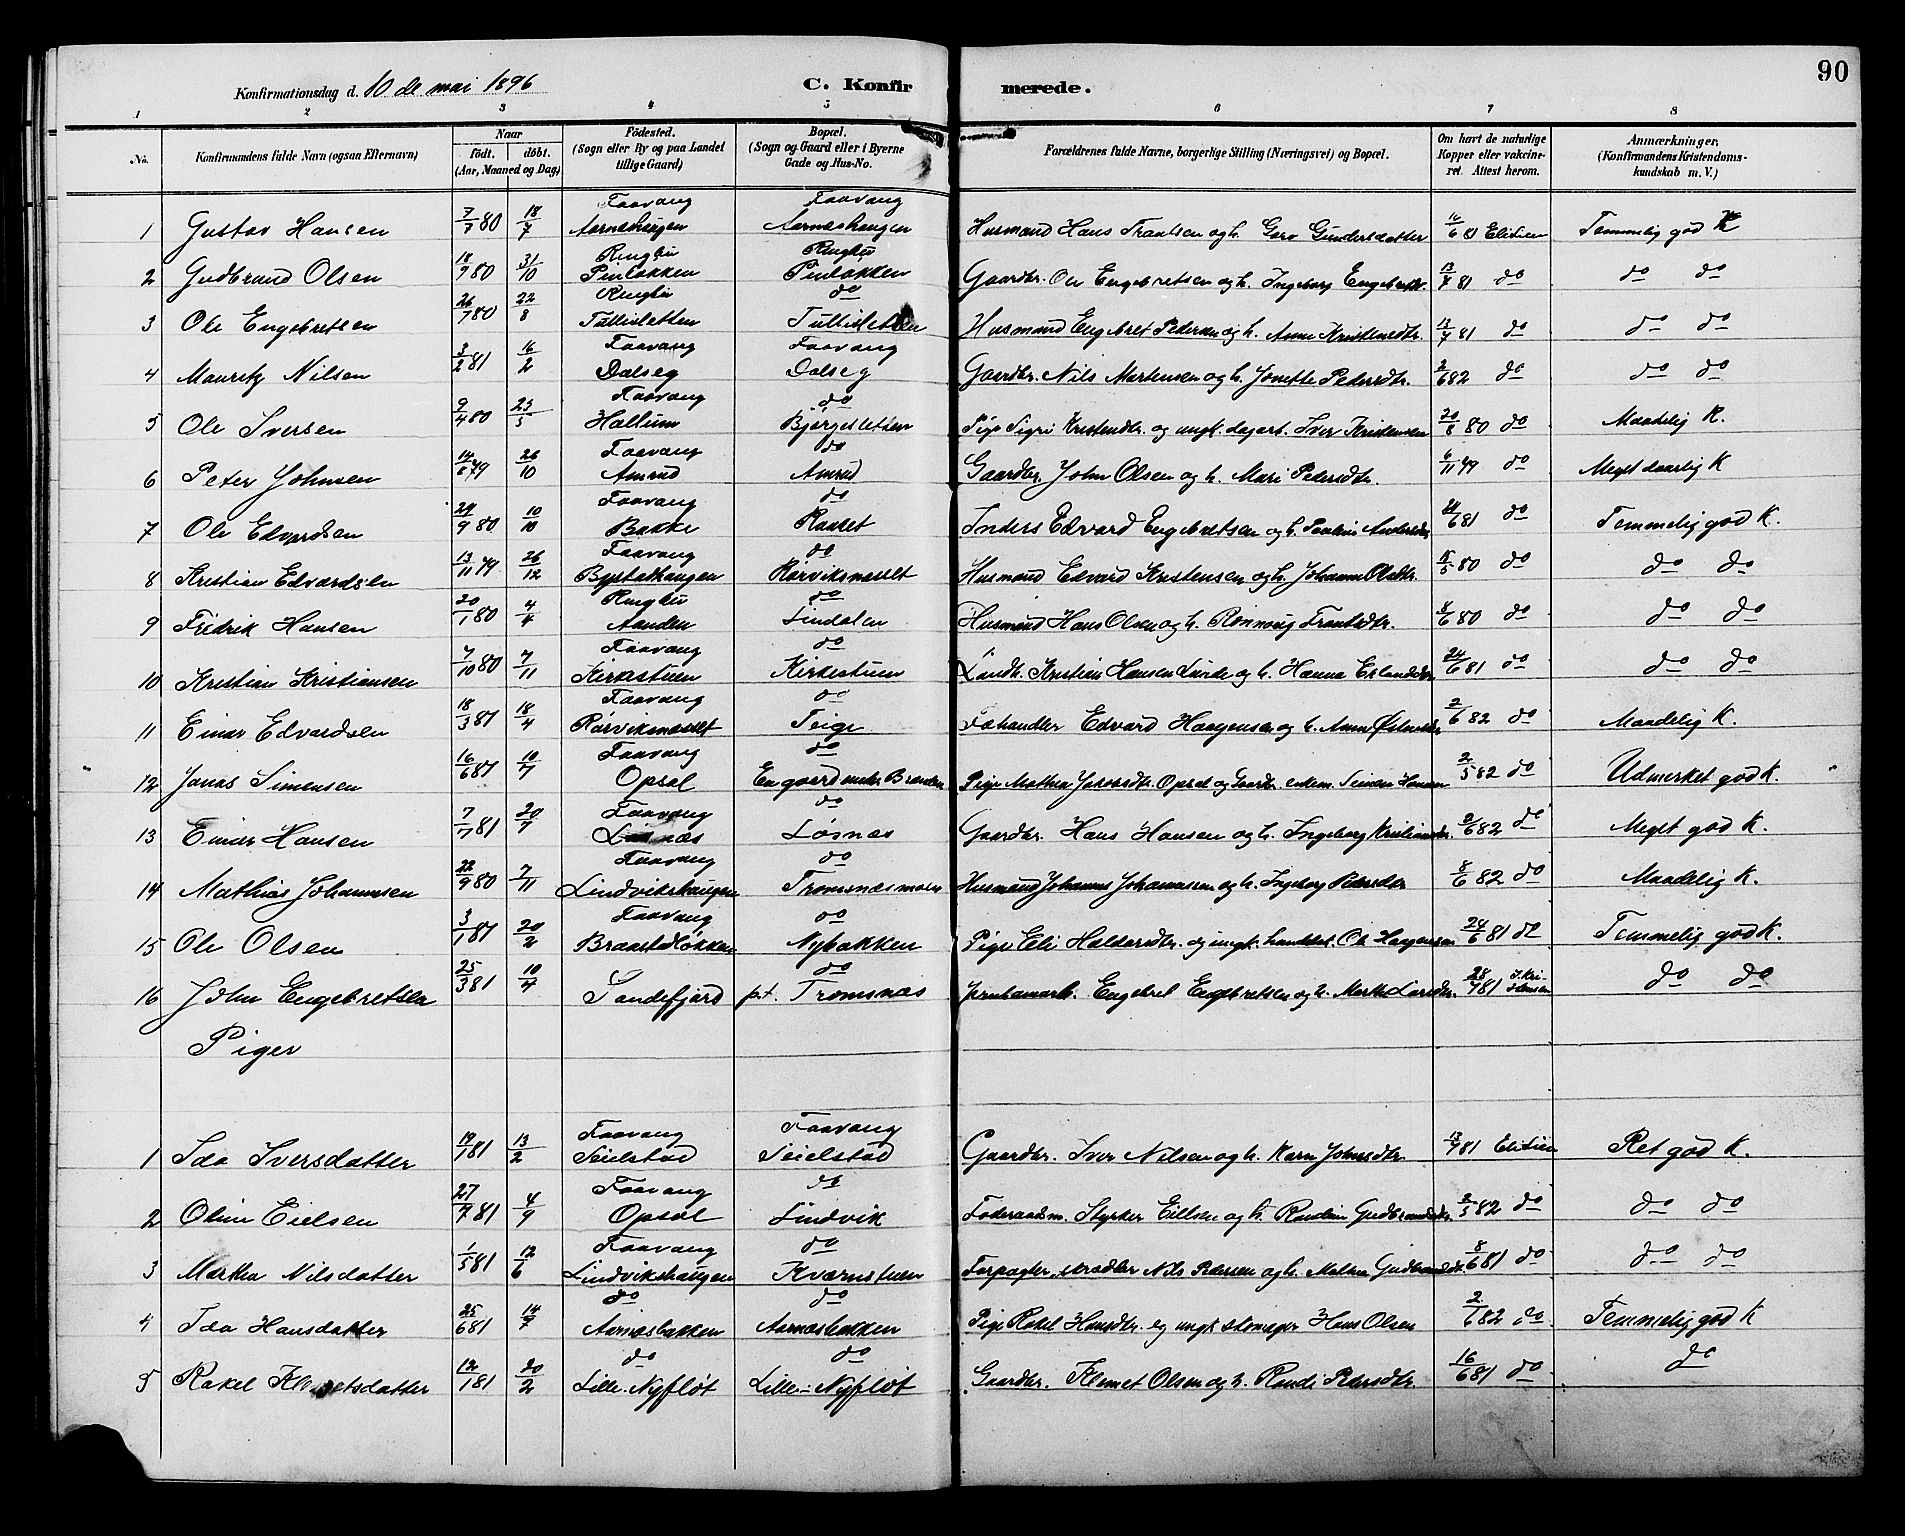 90
Konfirmationsdag d. 10 de mai 1896 C. Konfirmerede.
1 2 3 4 5 6 7 8
No. Konfirmandens fulde Navn (ogsaa Efternavn) Naar født. døbt. (Aar, Maaned og Dag) Fødested. (Sogn eller By og paa Landet tillige Gaard) Bopæl. (Sogn og Gaard eller i Byerne Gade og Hus-No. Forældrenes fulde Navne, borgerlige Stilling (Næringsvei) og Bopæl. Om havt de naturlige Kopper eller vakcineret. Attest herom. Anmærkninger. (Konfirmandens Kristendomskundskab m. V.)
Faavang Faavang
1 Gustav Hansen 7/7 80 18/7 Aarneshaugen Aarneshaugen Husmand Hans Frantsen og h. Goro Gundersdatter 16/6 81 Temmelig god K
Ringbu Ringbu
2 Gudbrand Olsen 18/9 80 31/10 Gaardbr. Ole Engebretsen og h. Ingeborg 13/7 81 do do do
Ringbu do
3 Ole Engebretsen 26/7 80 22/8 Tullisletten Tullisletten Husmand Engebret Pedersen og h. Anne 13/7 81 do do do
Faavang Faavang
4 Mauritz Nilsen 3/2 81 16/2 Dalseg Dalseg Gaardbr. Nils Martensen og h. Jonette Pedersdtr. 2/6 82 do do do
Faavang do
5 Ole Iversen 9/4 80 23/5 Hallum Bjørgesletten Pige Sigri Kristensdtr. og ungk. Iver Kristensen 20/8 80 do Maadelig K.
Faavang do
6 Peter Johnsen 14/8 79 26/10 Amrud Amrud Gaardbr. John Olsen og h. Mari Pedersdtr. 6/11 79 do Meget daarlig K
Faavang do
7 Ole Edvardsen 24/9 80 10/10 Bakke Raaset Inders Edvard Engebretsen og h. 24/6 81 do Temmelig god K.
Faavang do
8 Kristian Edvardsen 13/11 79 26/12 Bystathaugen Rørviksmosset Husmand Edvard Kristensen og h. Johanne Olsdtr. 15/5 80 do do do
Ringbu do
9 Fredrik Hansen 20/1 80 4/4 Aanden Lindalen Husmand Hans Olsen og h. Rønnoug Frantsdtr. 8/6 80 do do do
Faavang do
10 Kristian Kristiansen 7/10 80 7/11 Kirkestuen Kirkestuen Landh. Kristian Hansen Lunde og h. Hanna Erlandsdtr 24/6 81 do do do
Faavang do
11 Einar Edvardsen 18/3 81 18/4 Rørviksmosset Teige Føhandler Edvard Haagensen og h. Anne 2/6 82 do Maadelig K.
Faavang do
12 Jonas Simensen 16/6 81 10/7 Opsal Engaard under Pige Mathea Jakobsdtr. Opsal og Gaardbr. enkem. Simen Hansen 2/5 82 do Udmerket god K.
Faavang do
13 Einar Hansen 7/7 81 20/7 Løsnæs Løsnæs Gaardbr. Hans Hansen og h. Ingeborg 2/6 82 do Meget god K.
Faavang do
14 Mathias Johannesen 22/9 80 7/11 Lindvikshaugen Tromsnæsmoen Husmand Johannes Johannesen og h. Ingeborg Pedersdtr 8/6 82 do Maadelig K.
Faavang do
15 Ole Olsen 3/1 81 20/2 Braastadløkken Nybakken Pige Eli Haldorsdtr. og ungk. Ole Haagensen 24/6 81 do Temmelig god K.
do
16 John Engebretsen 25/3 81 10/4 Sandefjord pt. Tromsnæs Engebret Engebretsen og h. Marthe Larsdtr. 28/7 81 J. Kristensen do do
Piger
Faavang Faavang
1 Ida Iversdatter 19/1 81 13/2 Seielstad Seielstad Gaardbr. Iver Nilsen og h. Karn Johnsdtr. 13/7 81 Ret god K.
Faavang do
2 Oline Eielsen 27/7 81 4/9 Opsal Lindvik Føderaadsm. Styrker Eilsen og h. Randine Gudbrandsdtr. 2/5 82 do do do
Faavang do
3 Marthea Nilsdatter 1/5 81 12/6 Lindvikshaugen Kvarnstuen Forpagter, Nils Pedersen og h. Mathea Gudbrandsdtr. 8/6 81 do do do
do do
4 Ida Hansdatter 25/6 81 14/7 Aarnæsbakken Aarnæsbakken Pige Rakel Hansdtr. og ungk. Hans Olsen 2/7 82 do Temmelig god K
do do
5 Rakel Klemetsdatter 12/1 81 20/2 Lille-Nyfløt Lille-Nyfløt Gaardbr. Klemet Olsen og h. Randi Pedersdtr. 16/6 81 do do